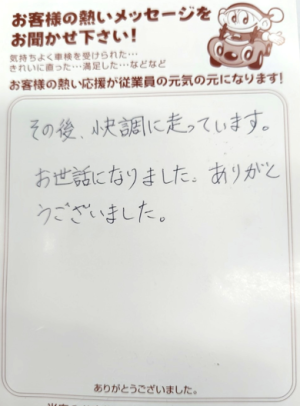 お客様の熱いメッセージを
お聞かせ下さい!
気持ちよく車検を受けられた…
きれいに直った…満足した…などなど
お客様の熱い応援が従業員の元気の元になります!
その後、快調に走っています。
お世話になりました。ありがと
うございました。
ありがとうございました。